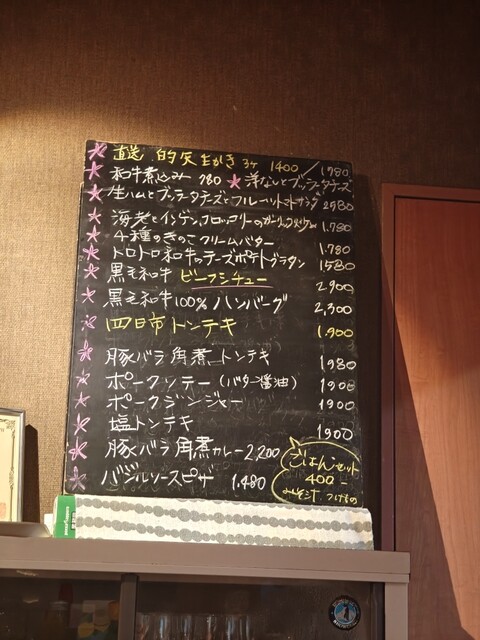 直送 的矢生がき 3ケ 1400/1780
和牛煮込み 980 ★洋なしとブッラータチーズ
生ハムとブッラータチーズとフルーツトマトサラダ 2580
海老とインゲン、ブロッコリーのガーリック 1.780
4種のきのこクリームバター 1.780
トロトロ和牛のチーズポテトグラタン 1580
黒毛和牛 ビーフシチュー 2900
黒毛和牛100%ハンバーグ 2,300
四日市トンテキ 1.900
豚バラ角煮トンテキ 1980
ポークソテー(バター醤油) 1900
ポークジンジャー 1900
塩トンテキ 1900
豚バラ角煮カレー 2,200
バジルソースピザ 1.480
ごはんセット
400-
みそ汁、つけもの